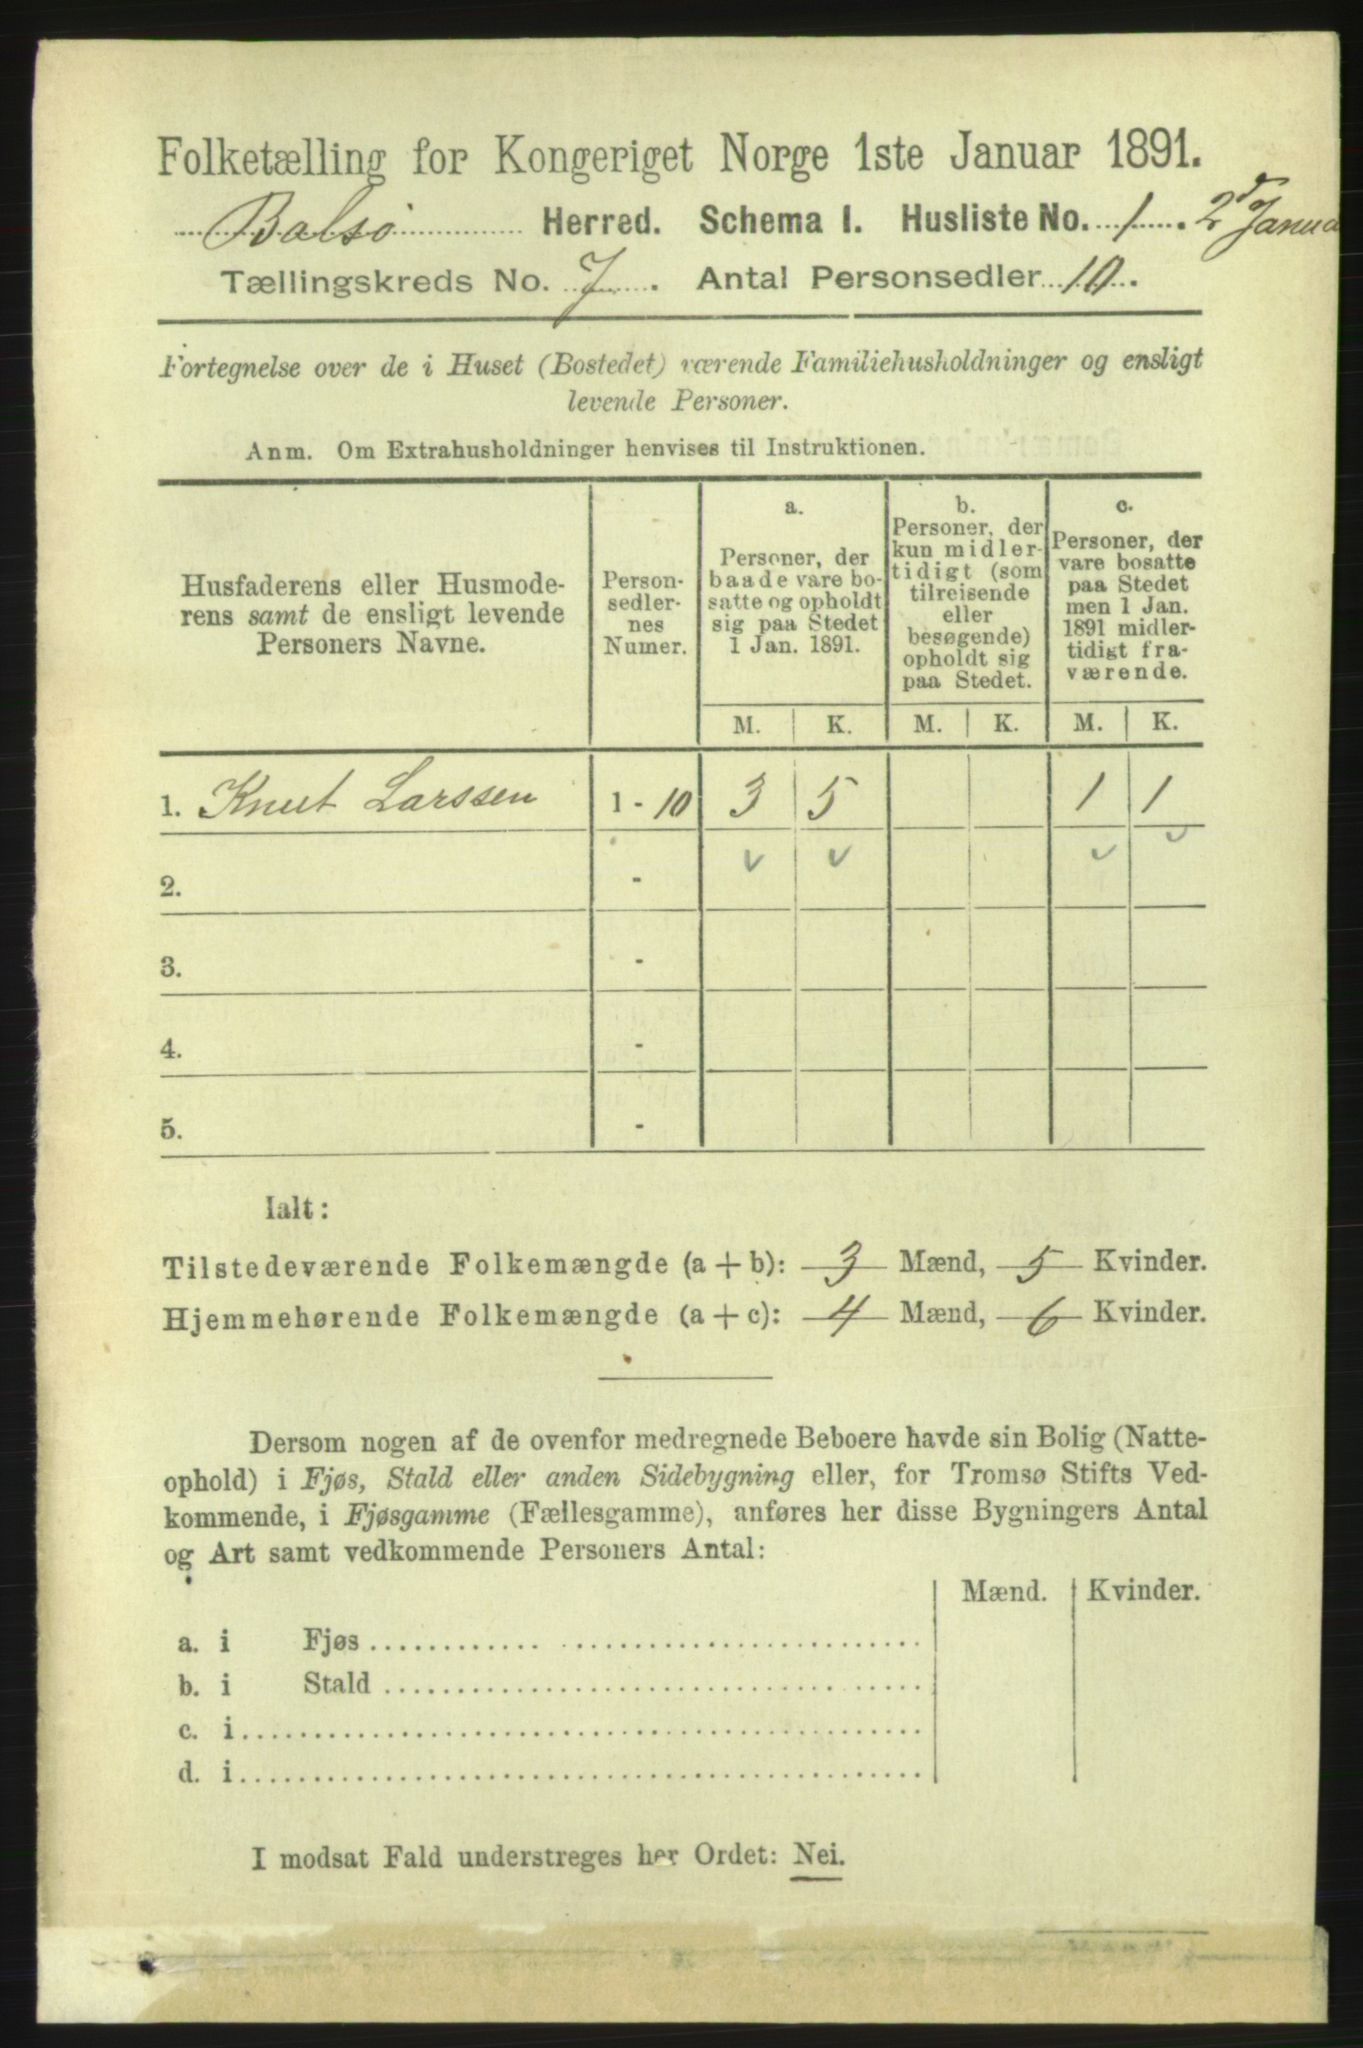 Folketælling for Kongeriget Norge 1ste Januar 1891.
Balsø Herred. Schema I. Husliste No. 1. 2 Januar
Tællingskreds No. 7. Antal Personsedler 10.
Fortegnelse over de i Huset (Bostedet) værende Familiehusholdninger og ensligt
levende Personer.
Anm. Om Extrahusholdninger henvises til Instruktionen.
Husfaderens eller Husmode-
rens samt de ensligt levende
Personers Navne.
Person-
sedler-
nes
Numer.
a.
Personer, der
baade vare bo-
satte og opholdt
sig paa Stedet
1 Jan. 1891.
b.
Personer, der
kun midler-
tidigt (som
tilreisende
eller
besøgende)
opholdt sig
paa Stedet.
c.
Personer, der
vare bosatte
paa Stedet
men 1 Jan.
1891 midler-
tidigt fra-
værende.
M. K. M. K. M. K.
1. Knut Larssen 1 - 10 3 5 1 1
2. -
3. -
4. -
5. -
Ialt:
Tilstedeværende Folkemængde (a + b): 3 Mænd, 5 Kvinder.
Hjemmehørende Folkemængde (a + c): 4 Mænd, 6 Kvinder.
Dersom nogen af de ovenfor medregnede Beboere havde sin Bolig (Natte-
ophold) i Fjøs, Stald eller anden Sidebygning eller, for Tromsø Stifts Ved-
kommende, i Fjøsgamme (Fællesgamme), anføres her disse Bygningers Antal
og Art samt vedkommende Personers Antal:
Mænd. Kvinder.
a. i Fjøs
b. i Stald
c. i
d. i
I modsat Fald understreges her Ordet: Nei.